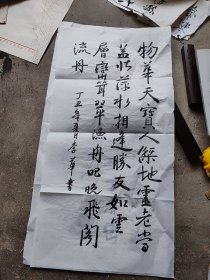 物华天寶人傑地靈老當
益壯萍水相逢勝友如雲
層巒聳翠漁舟唱晚飛閣
流丹
丁丑年 李華書